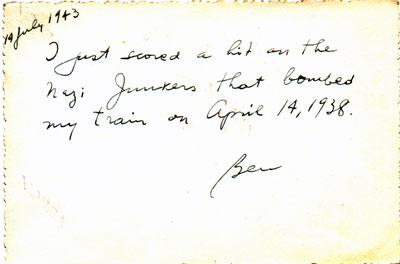 19 July 1943
I just scored a hit on the
Nazi Junkers that bombed
my train on April 14, 1938.
Ben